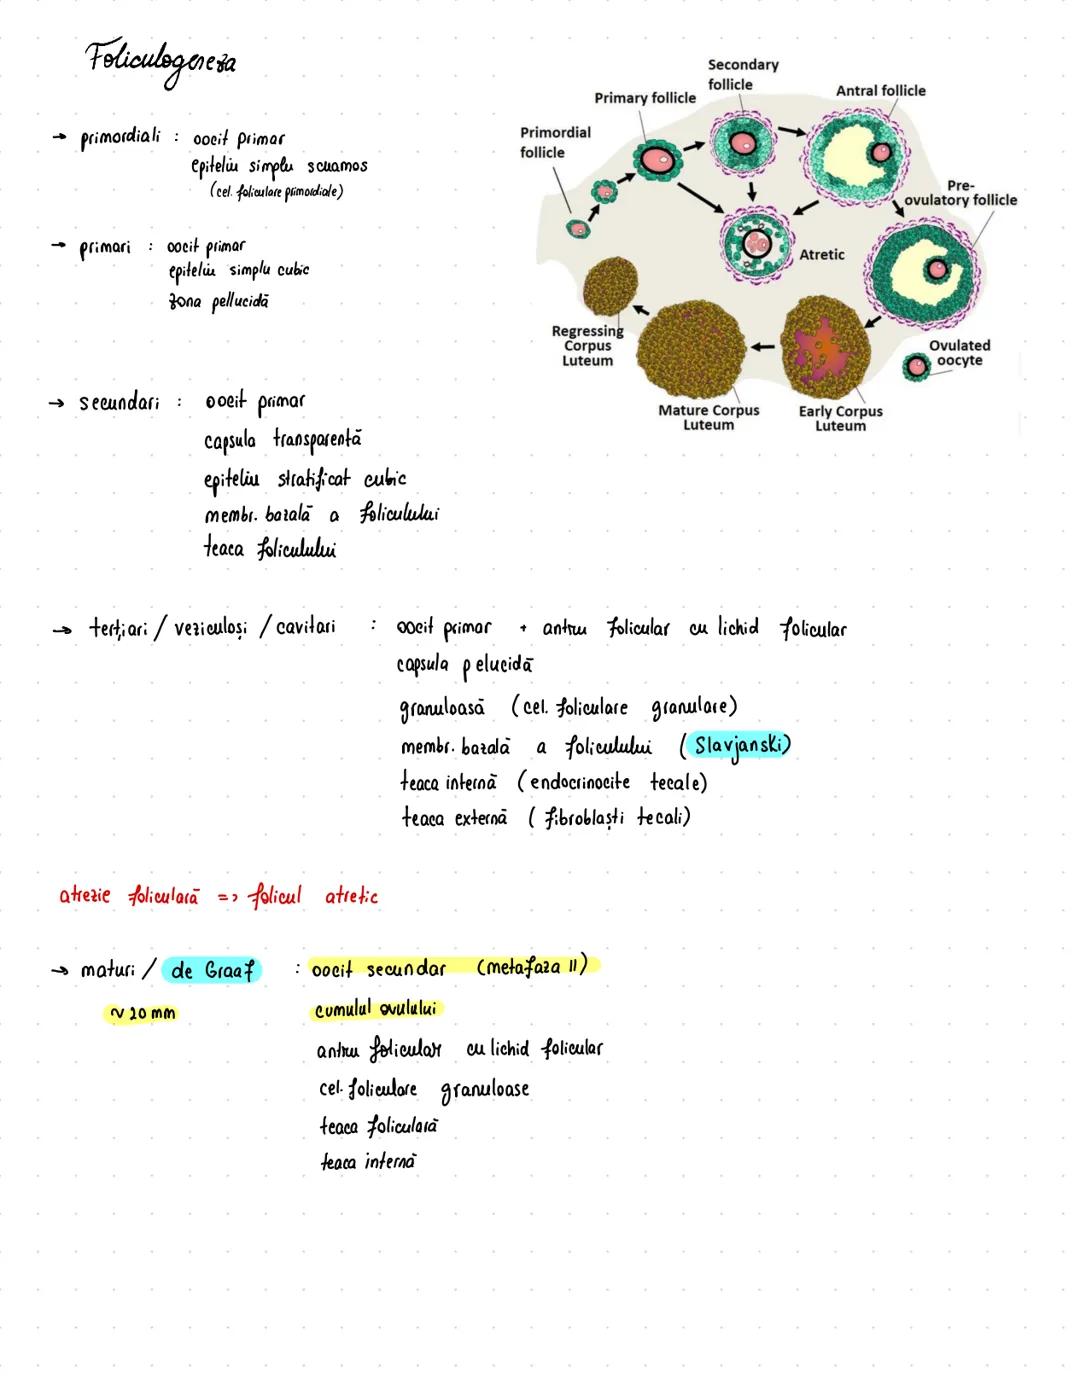 Foliculogeneza
→ primordiali : oocit primar
epiteliu simplu scuamos
(cel. foliculare primordiale)
→ primari : oocit primar
epiteliu simplu cubic
zona pellucidă
Primordial
follicle
Primary follicle
Secondary
follicle
Antral follicle
Pre-
ovulatory follicle
Atretic
Regressing
Corpus
Luteum
Mature Corpus
Luteum
Early Corpus
Luteum
Ovulated
oocyte
→ secundari : oocit primar
capsula transparentă
epiteliu stratificat cubic
membr. bazală a foliculului
teaca foliculului
→ terțiari / veziculoși / cavitari : oocit primar + antru folicular cu lichid folicular
capsula pelucidă
granuloasă (cel. foliculare granulare)
membr. bazală a foliculului (Slavjanski)
teaca internă (endocrinocite tecale)
teaca externă (fibroblaști tecali)
atrezie foliculară => folicul atretic
→ maturi / de Graaf : oocit secundar (metafaza II)
~ 20 mm cumulul ovulului
antru folicular cu lichid folicular
cel. foliculare granuloase
teaca foliculară
teaca internă